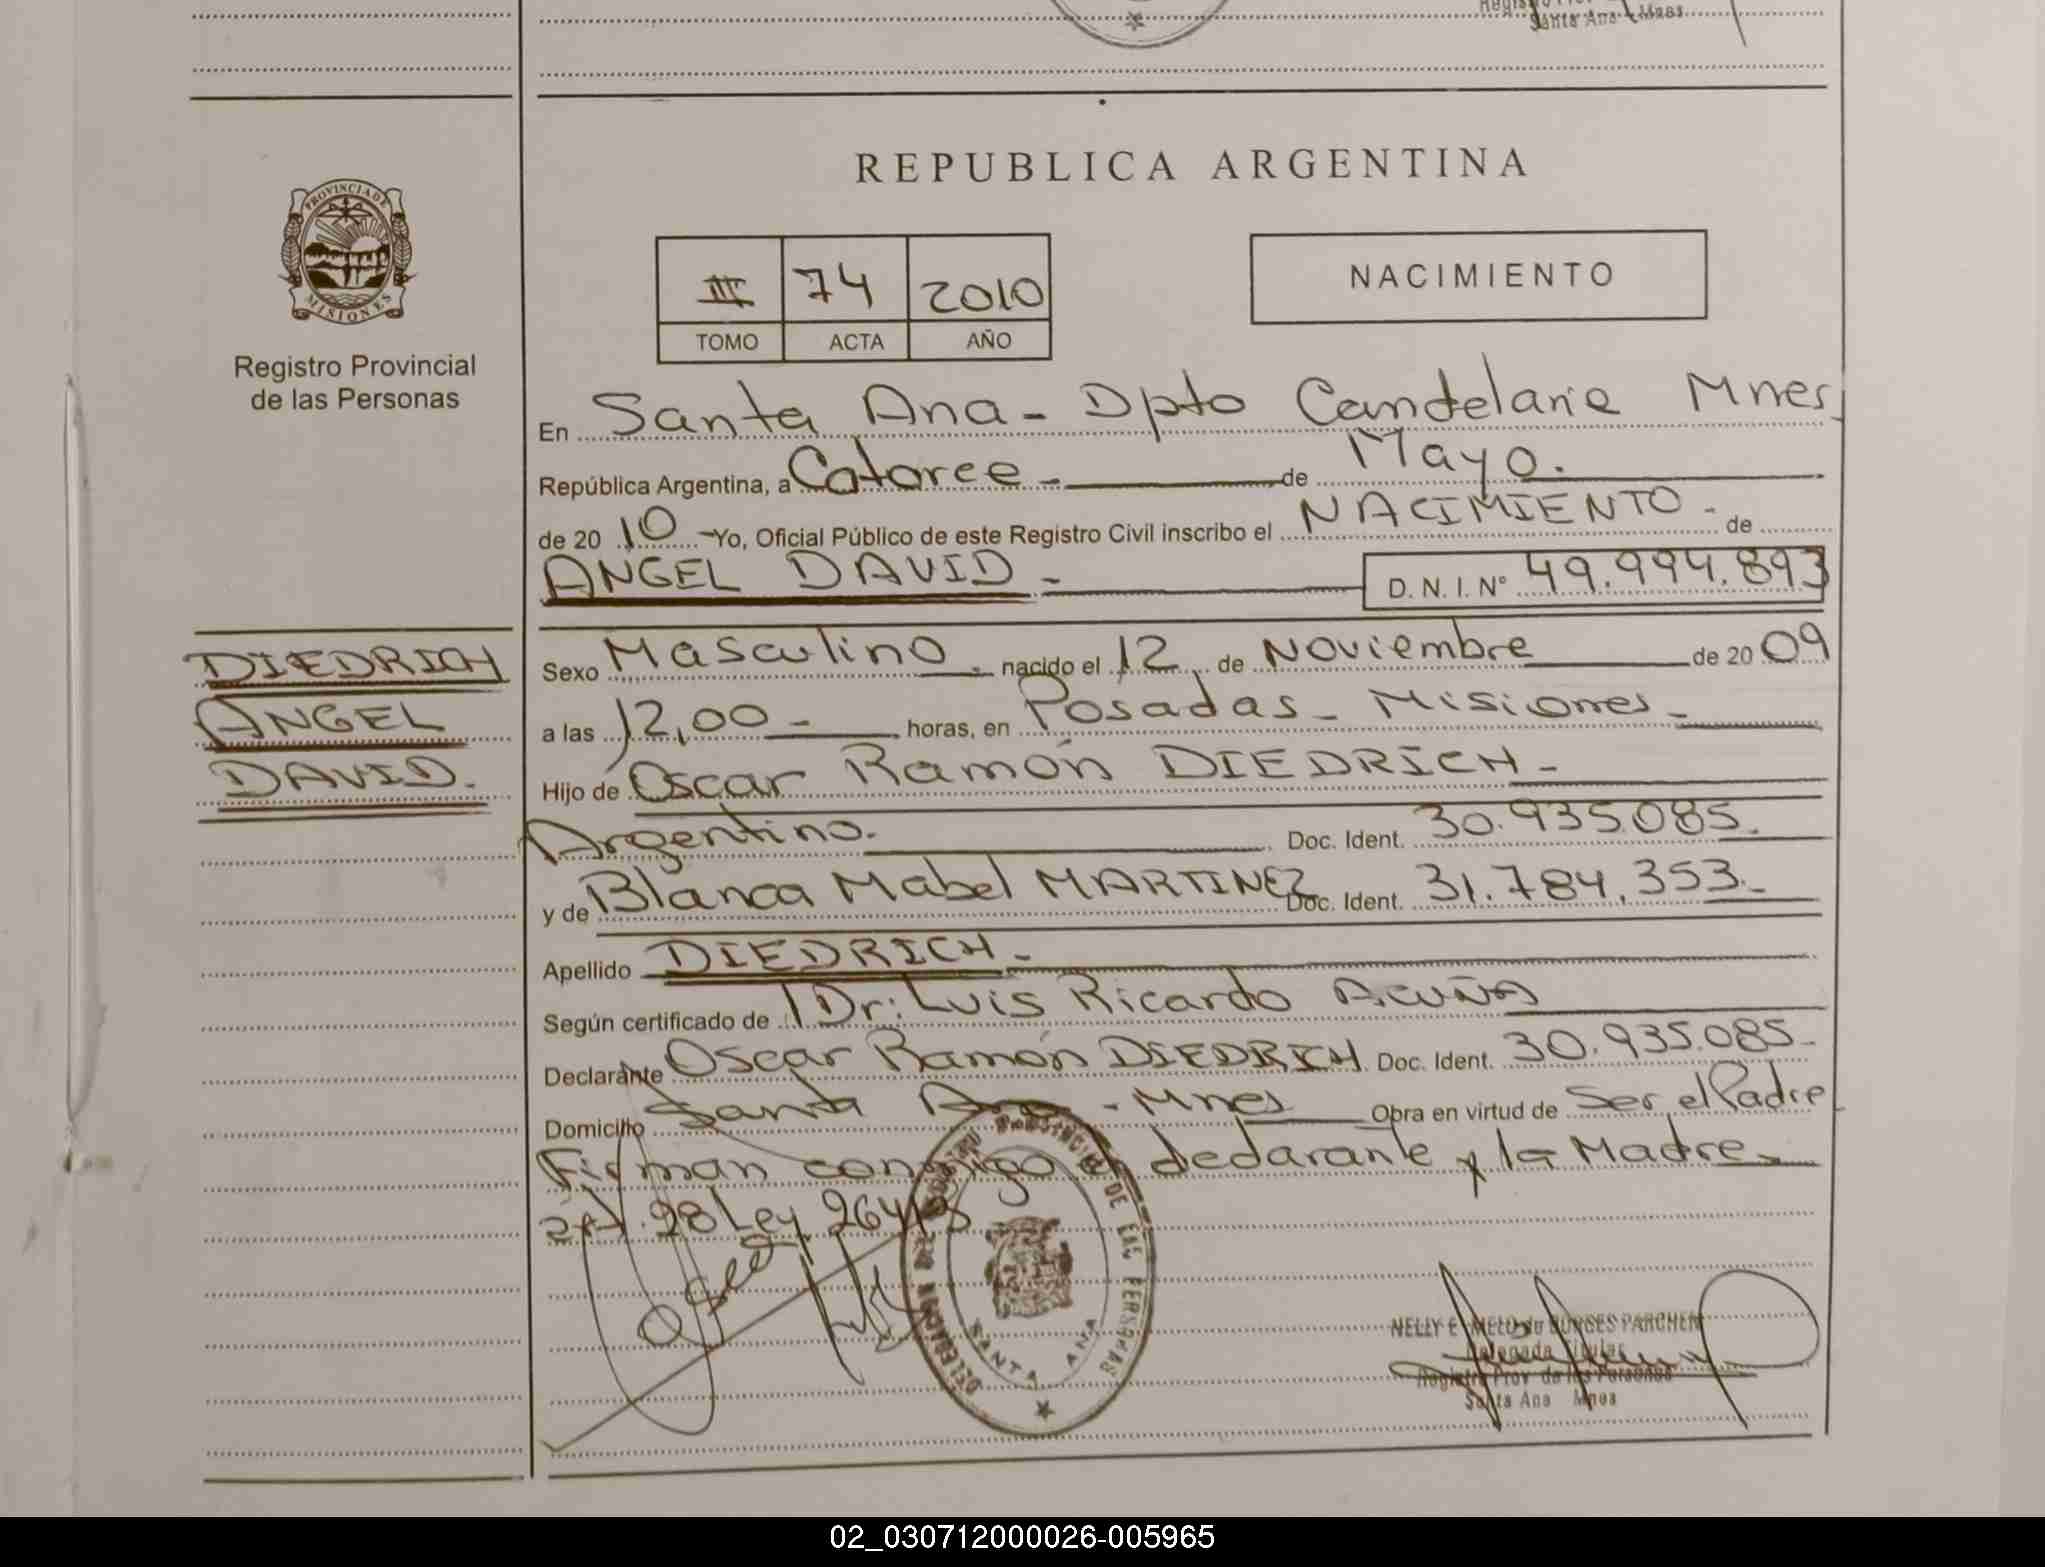 Santa Ana Mnes
REPUBLICA ARGENTINA
PROVINCIA DE
MISIONES
Registro Provincial
de las Personas
III 74 2010
TOMO ACTA AÑO
NACIMIENTO
En Santa Ana - Dpto Candelaria Mnes.
República Argentina, a Catorce - de Mayo.
de 2010 - Yo, Oficial Público de este Registro Civil inscribo el NACIMIENTO - de
ANGEL DAVID - D. N. I. Nº 49.994.893
DIEDRICH
ANGEL
DAVID.
Sexo Masculino. nacido el 12 de Noviembre de 2009
a las 12,00 - horas, en Posadas - Misiones -
Hijo de Oscar Ramón DIEDRICH -
Argentino. Doc. Ident. 30.935.085.
y de Blanca Mabel MARTINEZ Doc. Ident. 31.784.353.-
Apellido DIEDRICH -
Según certificado de Dr: Luis Ricardo ACUÑA
Declarante Oscar Ramón DIEDRICH Doc. Ident. 30.935.085-
Domicilio Santa Ana - Mnes Obra en virtud de Ser el Padre
Firman conmigo el declarante y la Madre -
28 Ley 26413
DELEGACION DEL REGISTRO PROVINCIAL DE LAS PERSONAS
SANTA ANA
NELLY E MELO de BORGES PARCHEN
Delegada Titular
Registro Prov de las Personas
Santa Ana Mnes
02_030712000026-005965